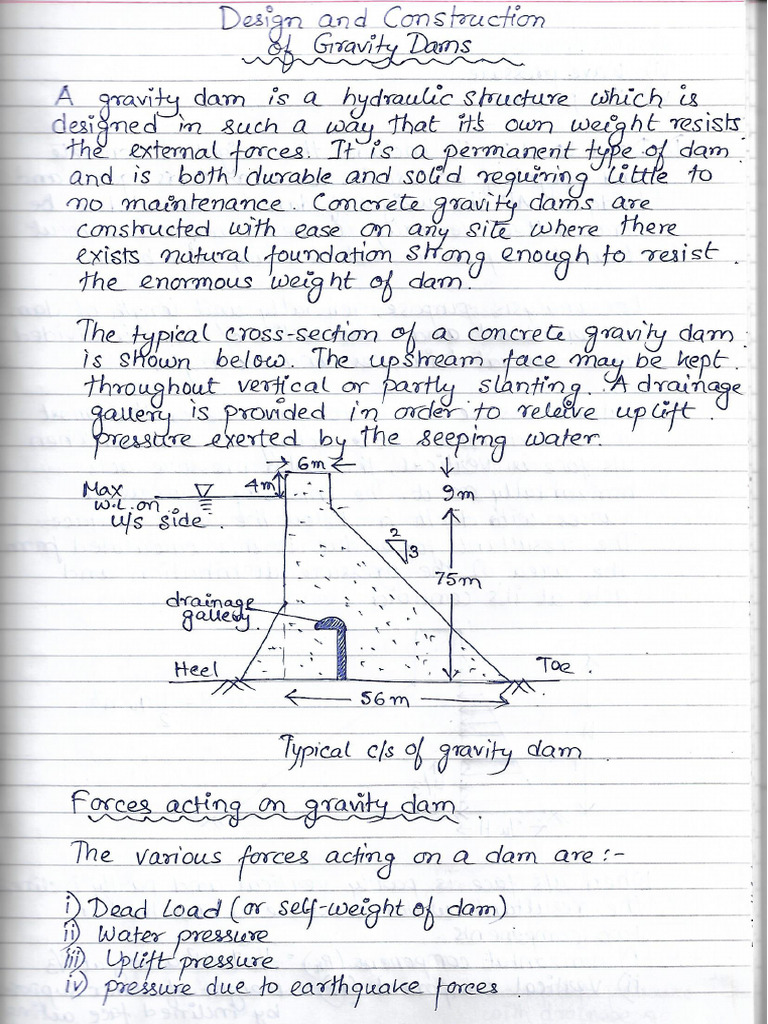 Design and Construction
of Gravity Dams
A gravity dam is a hydraulic structure which is
designed in such a way that it's own weight resists
the external forces. It is a permanent type of dam
and is both durable and solid requiring little to
no maintenance. Concrete gravity dams are
constructed with ease on any site where there
exists natural foundation strong enough to resist
the enormous weight of dam.
The typical cross-section of a concrete gravity dam
is shown below. The upstream face may be kept
throughout vertical or partly slanting. A drainage
gallery is provided in order to releive uplift
pressure exerted by the seeping water.
6m
4m
Max
w.l. on
u/s side.
9m
2
3
75m
drainage
gallery.
Heel
Toe.
56m
Typical c/s of gravity dam
Forces acting on gravity dam.
The various forces acting on a dam are :-
i) Dead Load (or self-weight of dam)
ii) Water pressure
iii) Uplift pressure
iv) pressure due to earthquake forces.